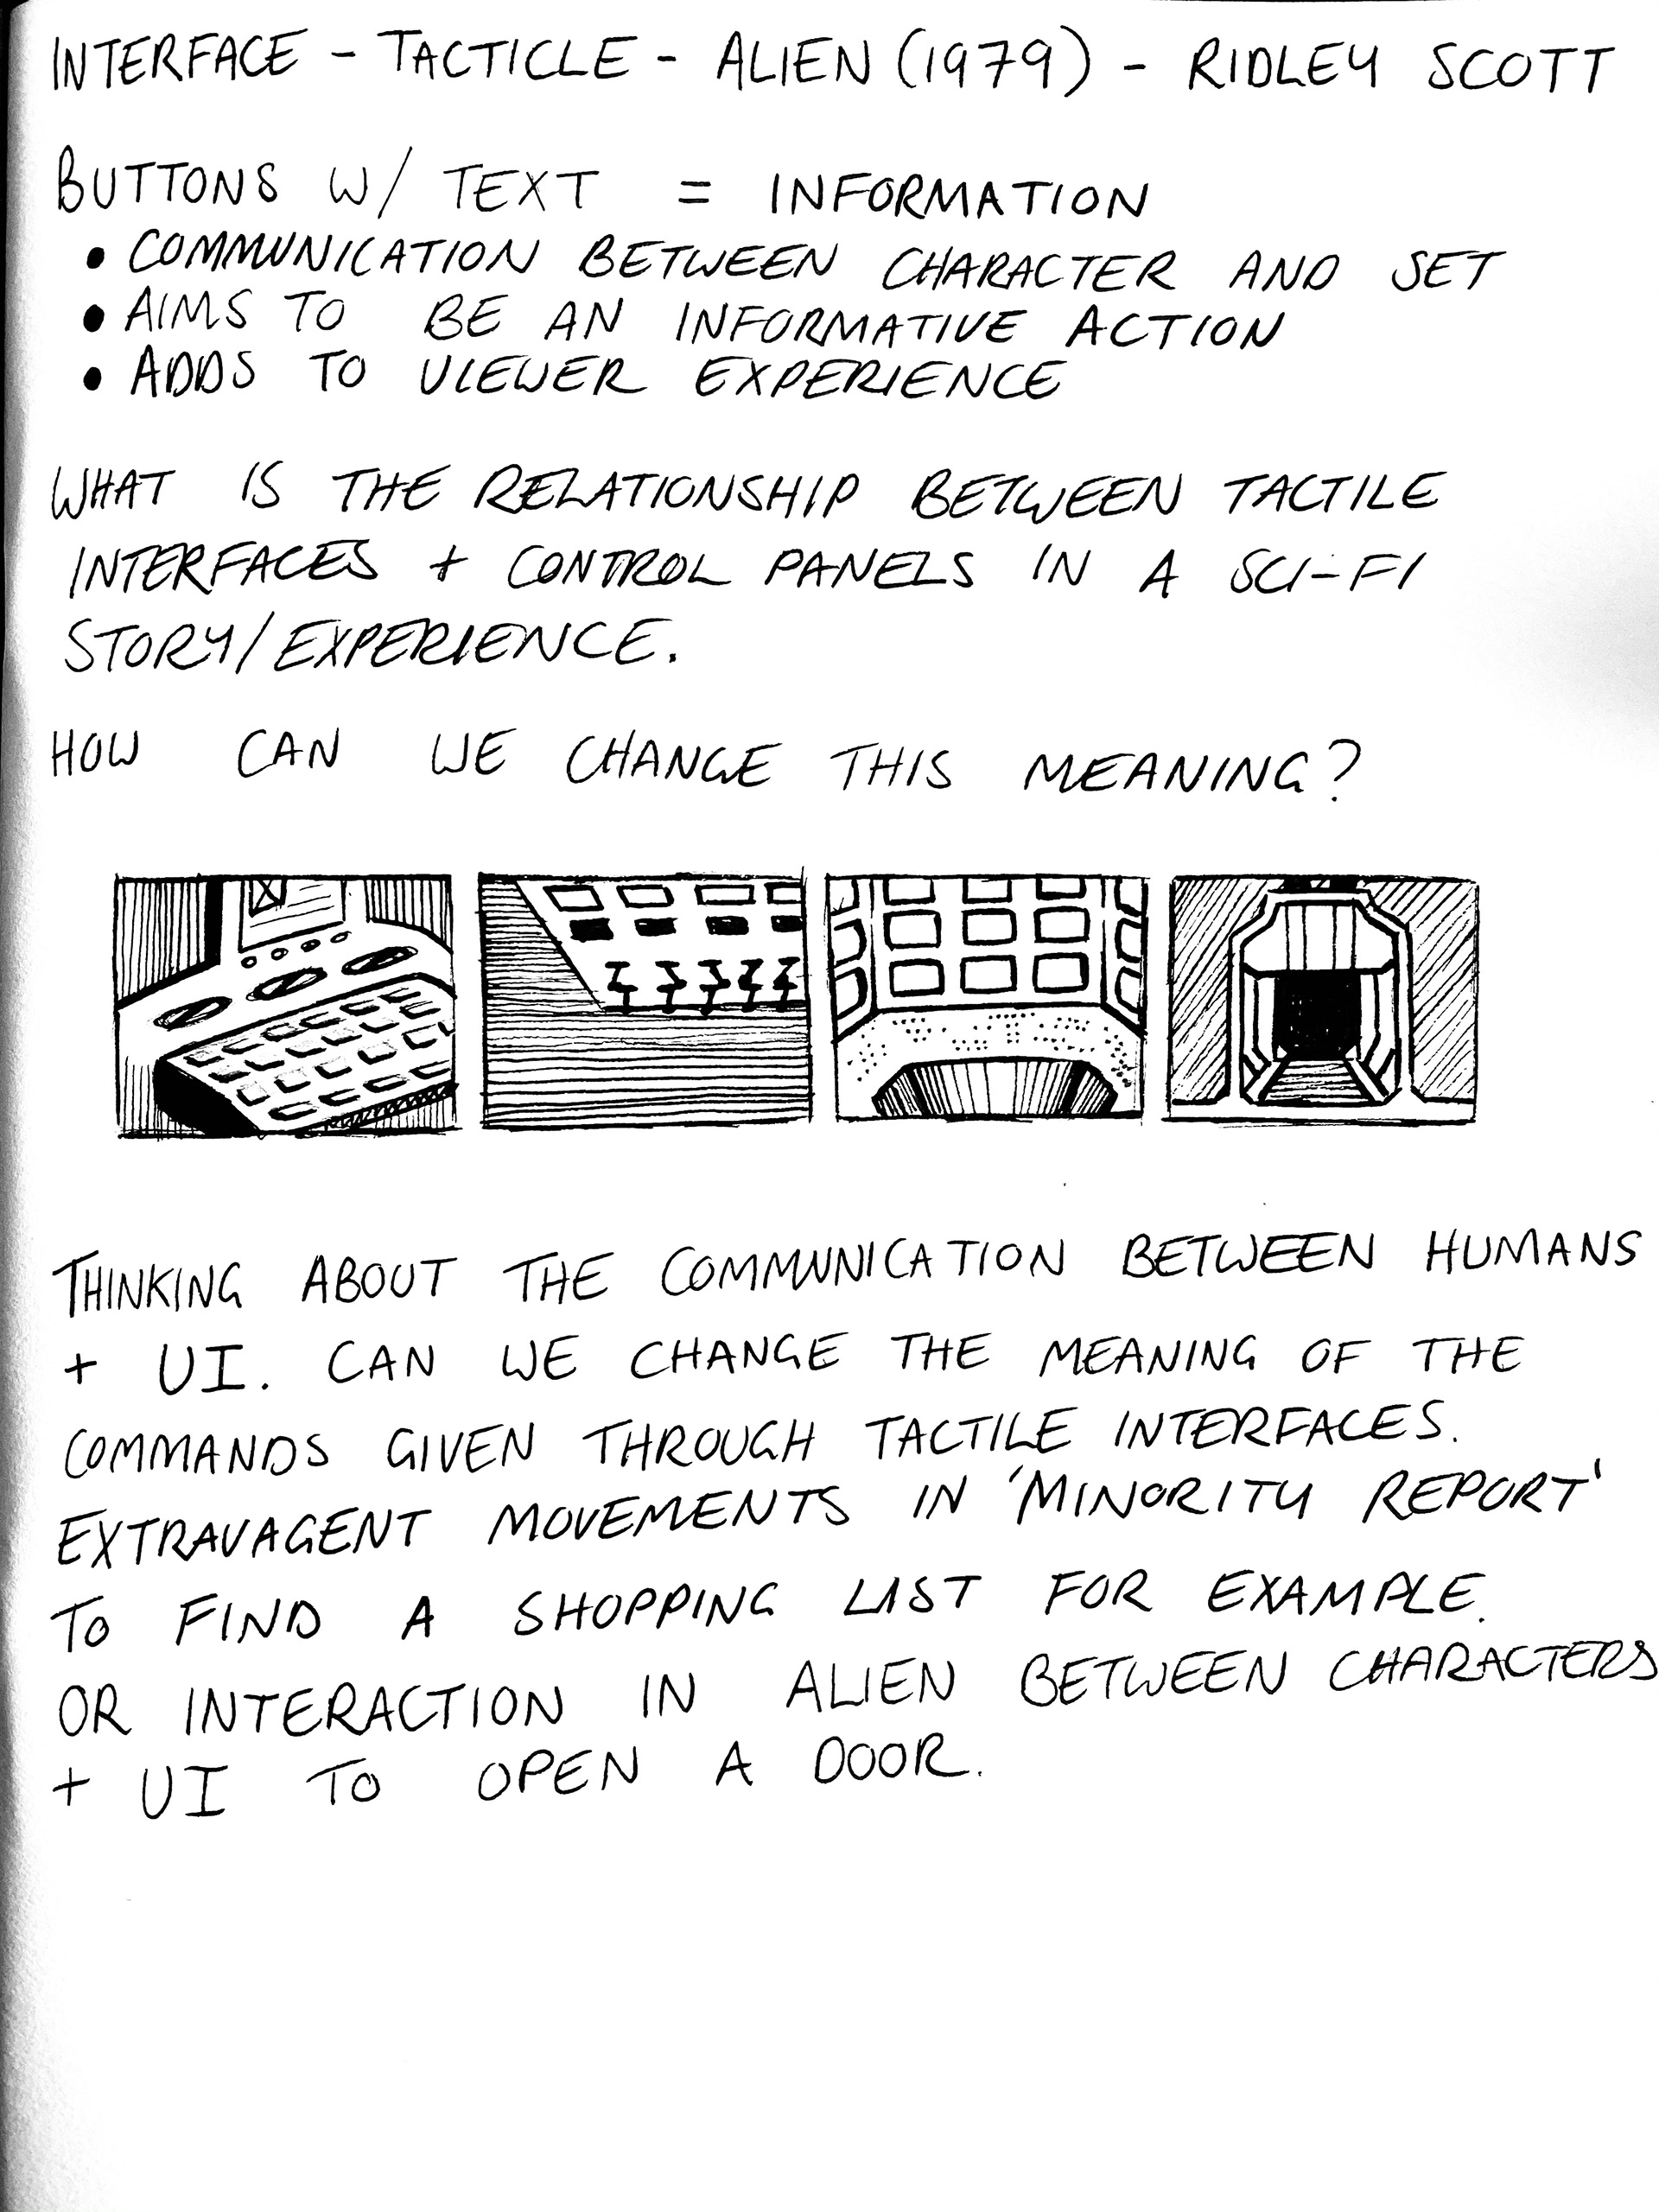 INTERFACE - TACTICLE - ALIEN (1979) - RIDLEY SCOTT
BUTTONS W/ TEXT = INFORMATION
• COMMUNICATION BETWEEN CHARACTER AND SET
• AIMS TO BE AN INFORMATIVE ACTION
• ADDS TO VIEWER EXPERIENCE
WHAT IS THE RELATIONSHIP BETWEEN TACTILE
INTERFACES + CONTROL PANELS IN A SCI-FI
STORY/EXPERIENCE.
HOW CAN WE CHANGE THIS MEANING?
THINKING ABOUT THE COMMUNICATION BETWEEN HUMANS
+ UI. CAN WE CHANGE THE MEANING OF THE
COMMANDS GIVEN THROUGH TACTILE INTERFACES.
EXTRAVAGENT MOVEMENTS IN 'MINORITY REPORT'
TO FIND A SHOPPING LIST FOR EXAMPLE.
OR INTERACTION IN ALIEN BETWEEN CHARACTERS
+ UI TO OPEN A DOOR.